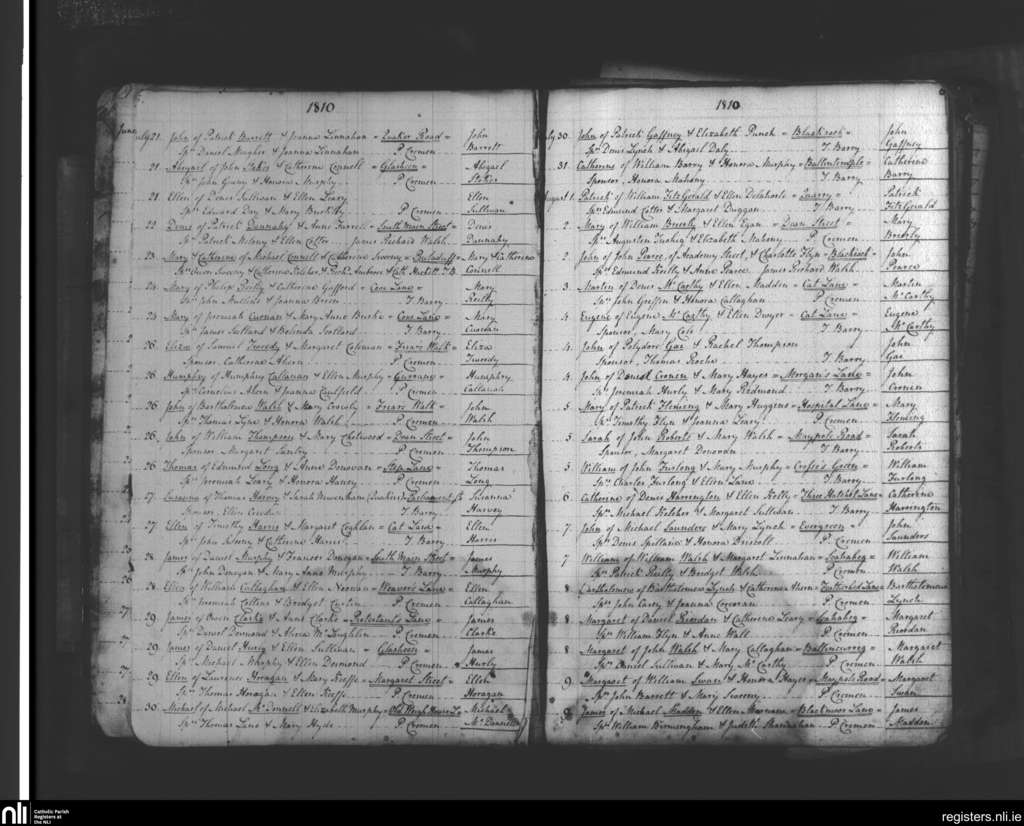 1810
July 21. John of Patrick Barrett & Joanna Linnahan = Quaker Road = John
Sps Daniel Meagher & Joanna Linnahan P Cremen Barrett
21 Abigael of John & Catherine Connell = Glasheen = Abigael
Sps John Geary & Honora Murphy P Cremen
21 Ellen of Denis Sullivan & Ellen Leary Ellen
Sps Edward Day & Mary Buckley P Cremen Sullivan
22 Denis of Patrick Dunnahy & Anne Farrell = South Main Street = Denis
Sps Patrick & Ellen Cotter James Richard Walsh Dunnahy
23 Mary & Catherine of Michael Connell & Catherine Sweeny = Mary & Catherine
Sps Owen Sweeny & Catherine & Cath. Hackett T B Connell
24 Mary of Philip Reilly & Catherine Gafford = Cove Lane = Mary
Sps John Mullins & Joanna Brien T Barry Reilly
25 Mary of Jeremiah Curean & Mary Anne Burke = Cove Lane = Mary
Sps James & Belinda Scotland T Barry Curean
26 Eliza of Samuel Tweedy & Margaret Coleman = Friars Walk = Eliza
Sponsor Catherine Ahern P Cremen Tweedy
26 Humphry of Humphry Callanan & Ellen Murphy = Humphry
Sps Cornelius Ahern & Joanna Caulfield P Cremen Callanan
26 John of Bartholomew Walsh & Mary Crowly = Friars Walk = John
Sps Thomas Lyne & Honora Walsh P Cremen Walsh
26. John of William Thompson & Mary Chetwood = Dean Street = John
Sponsor Margaret P Cremen Thompson
26 Thomas of Edmund Long & Anne Donovan = Step Lane = Thomas
Sps Jeremiah Leary & Honora P Cremen Long
27 Susanna of Thomas Harvey & Sarah (Quakers) Parliament St Susanna
Sponsor Ellen T Barry Harvey
27 Ellen of Timothy Harris & Margaret Coghlan = Cat Lane = Ellen
Sps John & Catherine Harris T Barry Harris
28 James of Daniel Murphy & Frances Donegan = South Main Street = James
Sps John Donegan & Mary Anne Murphy T Barry Murphy
28 Ellen of William Callaghan & Ellen Noonan = Weavers Lane = Ellen
Sps Jeremiah Collins & Bridget P Cremen Callaghan
29 James of Owen Clarke & Anne Clarke = Lane = James
Sps Daniel Desmond & Alicia McLoughlin P Cremen Clarke
29. James of Daniel & Ellen Sullivan = Glasheen = James
Sps Michael Murphy & Ellen Desmond P Cremen Hurly
29 Ellen of Laurence Horagan & Mary Keeffe = Margaret Street = Ellen
Sps Thomas Horagan & Ellen Keeffe P Cremen Horagan
30 Michael of Michael McDonnell & Elizabeth Murphy = Old Weigh House La Michael
Sps Thomas Lane & Mary Hyde P Cremen McDonnell
1810
July 30. John of Patrick Gaffney & Elizabeth Punch = Blackrock = John
Sps Denis Lynch & Abigail Daly T Barry Gaffney
31. Catherine of William Barry & Honora Murphy = Ballintemple = Catherine
Sponsor, Honora Mahony T Barry Barry
August 1. Patrick of William FitzGerald & Ellen Delahunte = Quarry = Patrick
Sps Edmund Cotter & Margaret Duggan T Barry FitzGerald
2. Mary of William Brierly & Ellen Egan = Dean Street = Mary
Sps Augustin & Elizabeth Mahony P Cremen Brierly
2 John of John Pearce, of Academy Street, & Charlotte Flyn = Blackrock = John
Sps Edmund Reilly & Anne Pearce James Richard Walsh Pearce
3. Martin of Denis McCarthy & Ellen Madden = Cat Lane = Martin
Sps John Griffin & Honora Callaghan P Cremen McCarthy
4 Eugene of Eugene McCarthy & Ellen Dwyer = Cat Lane = Eugene
Sponsor, Mary T Barry McCarthy
4. John of Polydore Gae & Rachel Thompson John
Sponsor, Thomas Roche T Barry Gae
4. John of Daniel Cronen & Mary Hayes = Morgan's Lane = John
Sps Jeremiah Hurly & Mary Redmond T Barry Cronen
5. Mary of Patrick Fleming & Mary Huggens = Hospital Lane = Mary
Sps Timothy Flyn & Joanna Leary P Cremen Fleming
5 Sarah of John Roberts & Mary Walsh = Maypole Road = Sarah
Sponsor, Margaret T Barry Roberts
5 William of John Furlong & Mary Murphy = Crosse's Green = William
Sps Charles Furlong & Ellen Lane T Barry Furlong
6 Catherine of Denis Harrington & Ellen Kelly = Three Hatchet Lane = Catherine
Sps Michael Kelcher & Margaret Sullivan T Barry Harrington
7. John of Michael Saunders & Mary Lynch = Evergreen = John
Sps Denis Spillane & Honora Driscoll P Cremen Saunders
7 William of William Walsh & Margaret Linnahan = = William
Sps Patrick Reilly & Bridget Walsh P Cremen Walsh
8 Bartholomew of Bartholomew Lynch & Catherine Ahern = Lane = Bartholomew
Sps John Carey & Joanna Corcoran P Cremen Lynch
8 Margaret of Daniel Reordan & Catherine Leary = = Margaret
Sps William Flyn & Anne Wall P Cremen Reordan
8 Margaret of John Walsh & Mary Callaghan = Ballincurreg = Margaret
Sps Daniel Sullivan & Mary McCarthy P Cremen Walsh
9. Margaret of William Swan & Honora Hayes = Maypole Road = Margaret
Sps John Barrett & Mary Sweeny P Cremen Swan
9 James of Michael Madden & Ellen = Blackmoor Lane = James
Sps William Birmingham & Judith Shanahan P Cremen Madden
nli Catholic Parish
Registers at
the NLI
registers.nli.ie